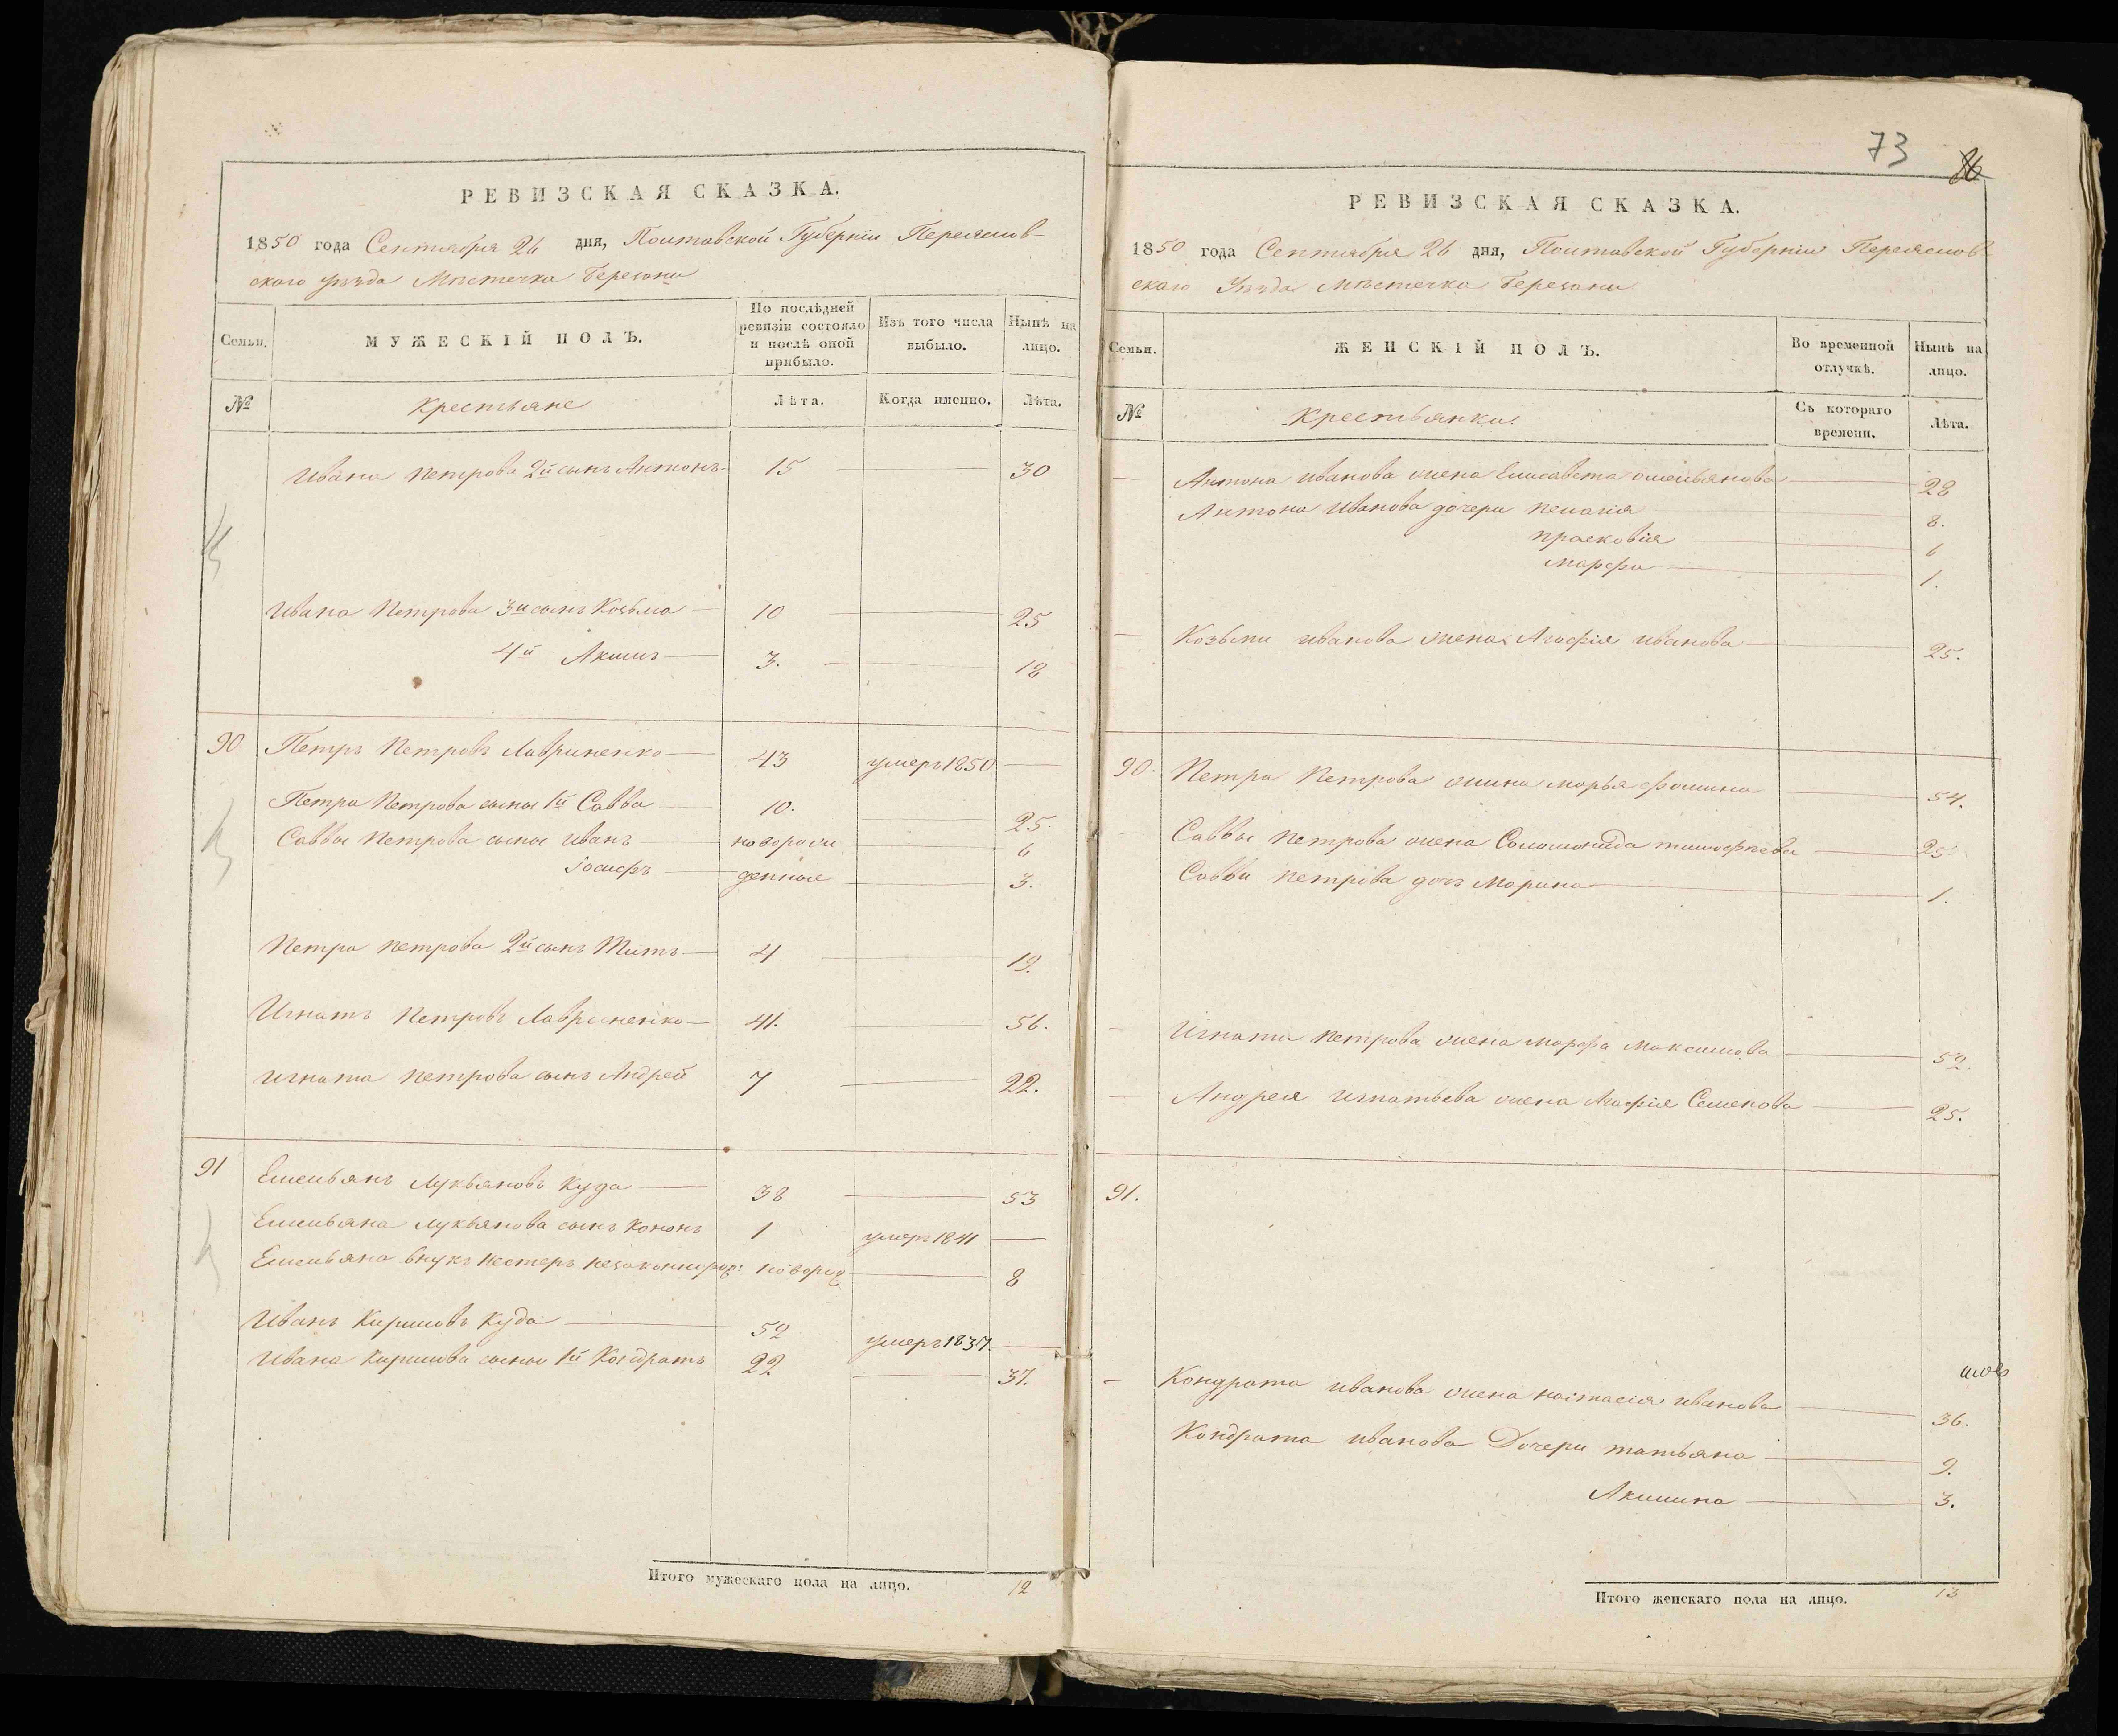 РЕВИЗСКАЯ СКАЗКА.
1850 года Сентября 26 дня, Полтавской Губерніи Переяслов-
скаго уѣзда Мѣстечка Березани
Семьи. МУЖЕСКІЙ ПОЛЪ. По послѣдней ревизіи состояло и послѣ оной прибыло. Изъ того числа выбыло. Нынѣ на лицо.
№ Крестьяне Лѣта. Когда именно. Лѣта.
Ивана Петрова 2й сынъ Антонъ 15 30
Ивана Петрова 3й сынъ Козьма 10 25
4й Акимъ 3. 18
90 Петръ Петровъ Лавриненко 43 умеръ 1850
Петра Петрова сыны 1й Савва 10. 25.
Саввы Петрова сыны Иванъ новорож 6
Іосифъ денные 3.
Петра Петрова 2й сынъ Титъ 4 19.
Игнатъ Петровъ Лавриненко 41. 56.
Игната Петрова сынъ Андрей 7 22.
91 Емельянъ Лукьяновъ Куда 38 53
Емельяна Лукьянова сынъ Кононъ 1 умеръ 1841
Емельяна внукъ Нестеръ незаконнорож: новорож 8
Иванъ Кириловъ Куда 52 умеръ 1837.
Ивана Кирилова сыны 1й Кондратъ 22 37.
Итого мужескаго пола на лицо. 12
73 86
РЕВИЗСКАЯ СКАЗКА.
1850 года Сентября 26 дня, Полтавской Губерніи Переяслов-
скаго Уѣзда Мѣстечка Березани
Семьи. ЖЕНСКІЙ ПОЛЪ. Во временной отлучкѣ. Нынѣ на лицо.
№ Крестьянки. Съ котораго времени. Лѣта.
Антона Иванова жена Елисавета Омельянова 28
Антона Иванова дочери Пелагія 8.
Прасковія 6
Марфа 1.
Козьмы Иванова жена Агафія Иванова 25.
90. Петра Петрова жина Марья Фомина 54.
Саввы Петрова жена Соломонида Тимофѣева 25
Саввы Петрова дочь Марина 1.
Игната Петрова жена Марфа Максимова 52.
Андрея Игнатьева жена Агафія Семенова 25.
91.
Кондрата Иванова жена Настасія Иванова 36.
Кондрата Иванова Дочери Татьяна 9.
Акилина 3.
Итого женскаго пола на лицо. 13